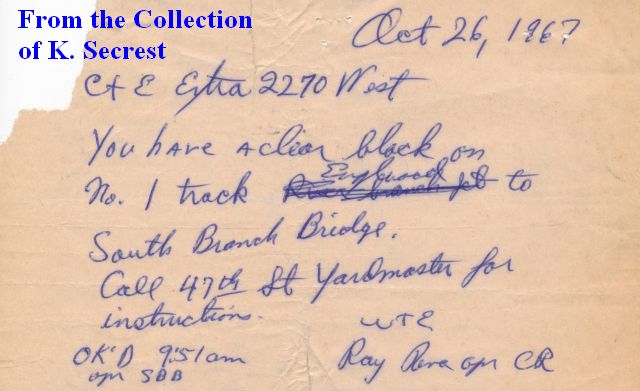 From the Collection
of K. Secrest
Oct 26, 1967
C+E Extra 2270 West
You have a clear block on
Englewood
No. 1 track to
South Branch Bridge.
Call 47th St Yardmaster for
instructions.
WTE
OK'D 9:51am
opr SBB
Ray opr CR